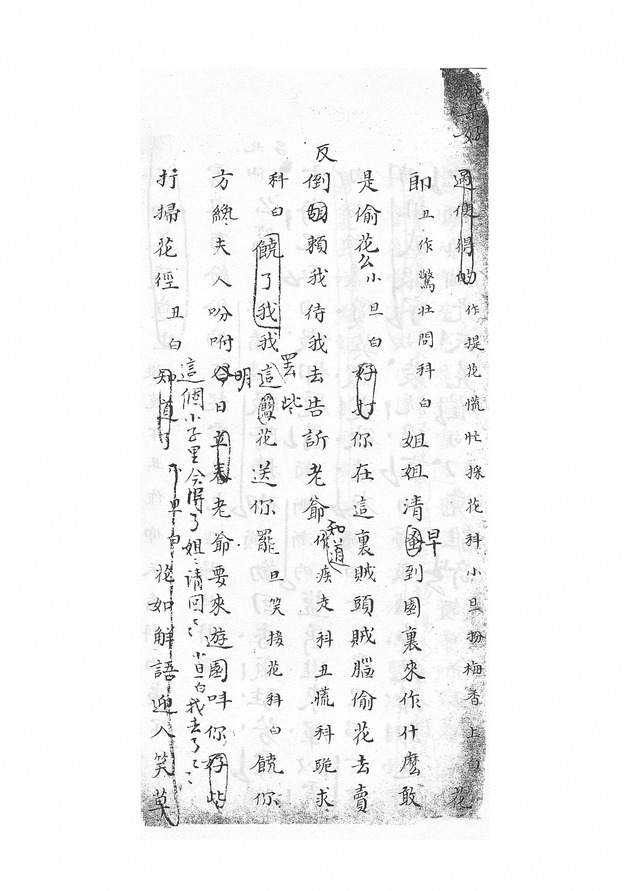 作提花慌壯採花科小旦扮梅香上白花
郎丑作驚壯問科白姐姐清蚤早到園裏來作什麽敢
是偷花么小旦白好打你在這裏賊頭賊腦偷花去賣
反倒賴我待我去告訴老爺知道作疾走科丑慌科跪求
科白饒了我我罢這些花送你罷旦笑接花科白饒你
方纔夫人吩咐明日老爺要來遊園呌你好些
這個小子里会得了姐〻請囘〻〻小旦白我去了〻〻
打掃花徑丑白知道了下旦白花如解語迎人笑草